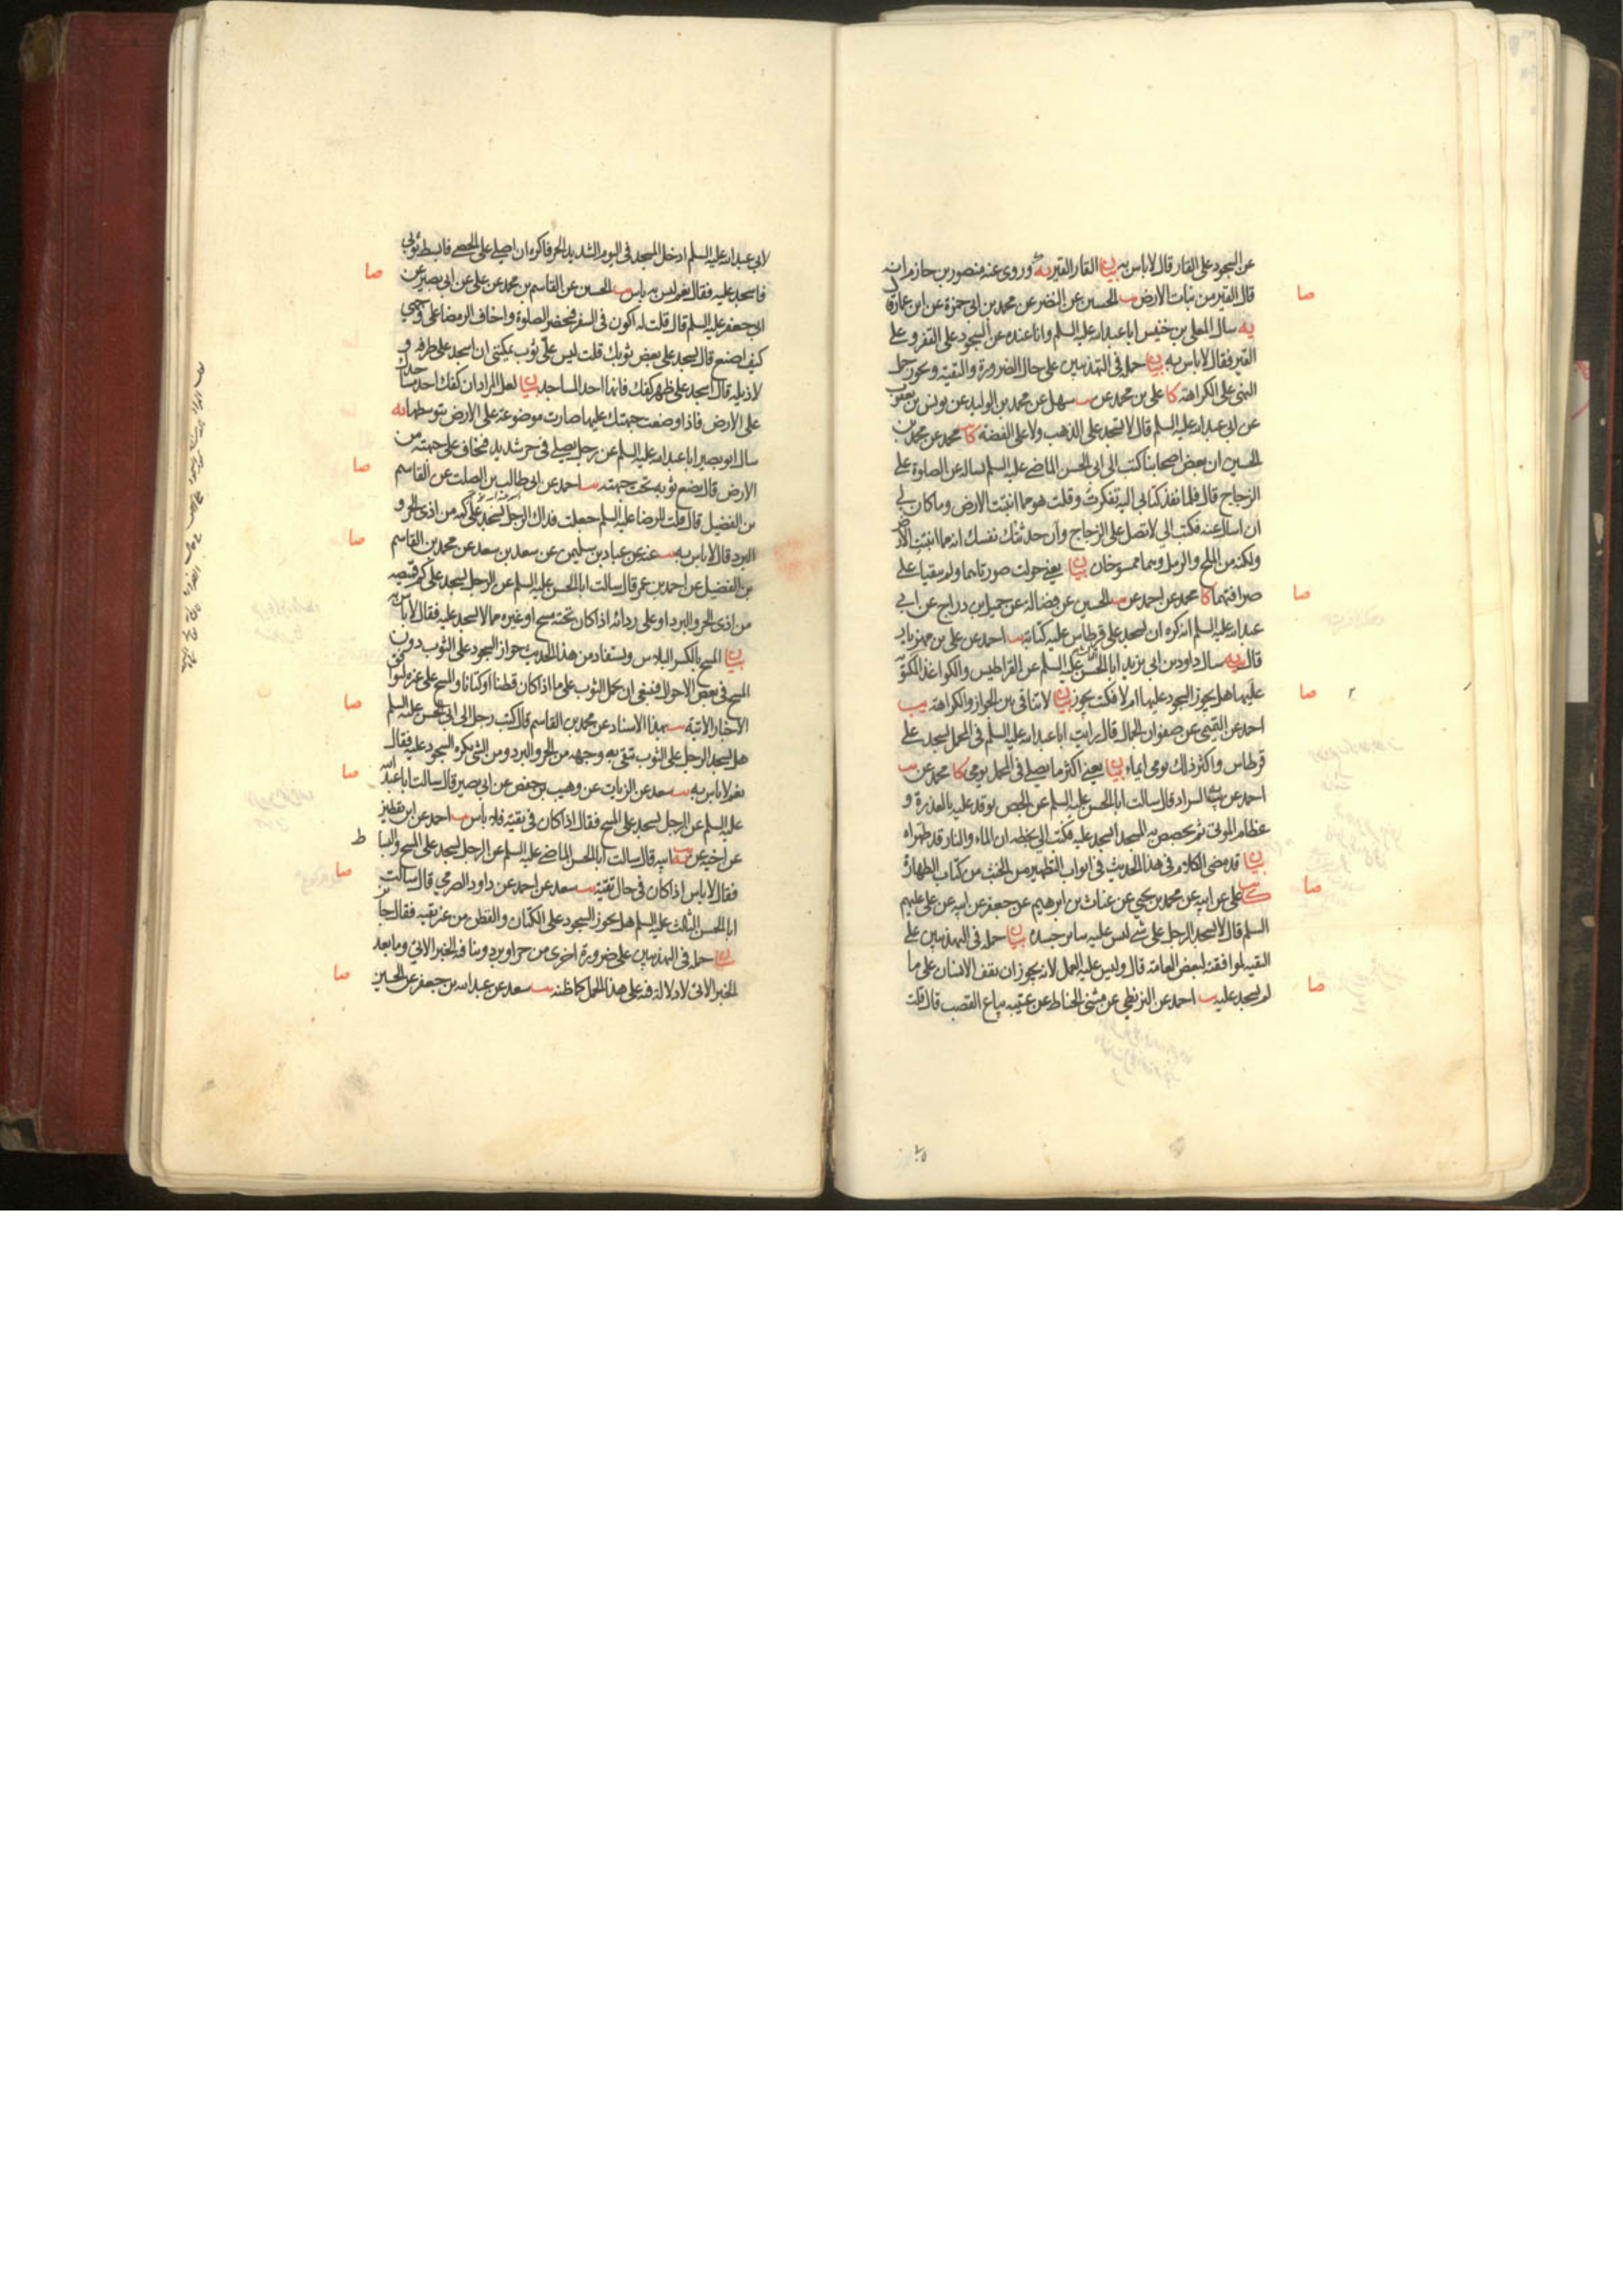 عن السجود على القار قال لا باس به بيان القار القير يه وروى عنه منصور بن حازم انه
قال القير من نبات الارض يب الحسين عن النضر عن محمد بن ابى حمزة عن ابن عمار قال
يه سال المعلى بن خنيس ابا عبدالله عليه السلم وانا عنده عن السجود على القفر وعلى
القير فقال لا باس به بيان حمله فى التهذيبين على حال الضرورة والتقية ويجوز حمل
النهى على الكراهة كا على بن محمد عن سهل عن محمد بن الوليد عن يونس بن يعقوب
عن ابى عبدالله عليه السلم قال لا يسجد على الذهب ولا على الفضة كا محمد عن محمد بن
الحسين ان بعض اصحابنا كتب الى ابى الحسن الماضى عليه السلم يساله عن الصلوة على
الزجاج قال فلما نفذ كتابى اليه تفكرت وقلت هو مما انبتت الارض وما كان لى
ان اسال عنه فكتب الى لا تصل على الزجاج وان حدثتك نفسك انه مما انبتت الارض
ولكنه من الملح والرمل وهما ممسوخان بيان يعنى حولت صورتاهما ولم يبقيا على
صرافتهما كا محمد عن احمد عن يب الحسين عن فضالة عن جميل بن دراج عن ابى
عبدالله عليه السلم انه كره ان يسجد على قرطاس عليه كتابة يب احمد عن على بن مهزيار
قال يه سال داود بن ابى يزيد ابا الحسن عليه السلم عن القراطيس والكواغذ المكتوبة
عليها هل يجوز السجود عليها ام لا فكتب يجوز بيان لا تنافى بين الجواز والكراهة يب
احمد عن التميمى عن صفوان الجمال قال رايت ابا عبدالله عليه السلم فى المحمل يسجد على
قرطاس واكثر ذلك يومى ايماء بيان يعنى اكثر ما يصلى فى المحمل يومى كا محمد عن يب
احمد عن السراد قال سالت ابا الحسن عليه السلم عن الجص يوقد عليه بالعذرة و
عظام الموتى ثم يجصص به المسجد ايسجد عليه فكتب الى بخطه ان الماء والنار قد طهراه
بيان قد مضى الكلام فى هذا الحديث فى ابواب التطهير من الخبث من كتاب الطهارة
على عن ابيه عن محمد بن يحيى عن غياث بن ابرهيم عن جعفر عن ابيه عن على عليهم
السلم قال لا يسجد الرجل على شى ليس عليه ساير جسده بيان حمله فى التهذيبين على
التقية لموافقته لبعض العامة قال وليس عليه العمل لانه يجوز ان يقف الانسان على ما
لم يسجد عليه يب احمد عن البزنطى عن مثنى الحناط عن عيينه بياع القصب قال قلت
صا
صا
صا
صا
صا
لابى عبدالله عليه السلم ادخل المسجد فى اليوم الشديد الحر فاكره ان اصلى على الحصى فابسط ثوبى
فاسجد عليه فقال نعم ليس به باس يب الحسين عن القاسم بن محمد عن على عن ابى بصير عن
ابى جعفر عليه السلم قال قلت له اكون فى السفر فتحضر الصلوة واخاف الرمضاء على وجهى
كيف اصنع قال تسجد على بعض ثوبك قلت ليس على ثوب يمكننى ان اسجد على طرفه و
لا ذيله قال اسجد على ظهر كفك فانها احد المساجد بيان لعل المراد ان كفك احد مساجدك
على الارض فاذا وضعت جبهتك عليها صارت موضوعة على الارض بتوسطها يه
سال ابو بصير ابا عبدالله عليه السلم عن رجل يصلى فى حر شديد فيخاف على جبهته من
الارض قال يضع ثوبه تحت جبهته يب احمد عن ابى طالب بن الصلت عن القاسم
بن الفضيل قال قلت للرضا عليه السلم جعلت فداك الرجل يسجد على كمه من اذى الحر و
البرد قال لا باس به يب عنه عن عباد بن سليمن عن سعد بن سعد عن محمد بن القاسم
بن الفضيل عن احمد بن عمر قال سالت ابا الحسن عليه السلم عن الرجل يسجد على كم قميصه
من اذى الحر والبرد او على ردائه اذا كان تحته مسح او غيره مما لا يسجد عليه فقال لا باس به
بيان المسح بالكسر البلاس ويستفاد من هذا الحديث جواز السجود على الثوب دون
المسح فى بعض الاحوال فينبغى ان يحمل الثوب على ما اذا كان قطنا او كتانا والمسح على غيره لتوافق
الاخبار الاتية يب بهذا الاسناد عن محمد بن القاسم قال كتب رجل الى ابى الحسن عليه السلم
هل يسجد الرجل على الثوب يتقى به وجهه من الحر والبرد ومن الشى يكره السجود عليه فقال
نعم لا باس به يب سعد عن الزيات عن وهيب بن حفص عن ابى بصير قال سالت ابا عبدالله
عليه السلم عن الرجل يسجد على المسح فقال اذا كان فى تقية فلا باس يب احمد عن ابن يقطين
عن اخيه عن ابيه قال سالت ابا الحسن الماضى عليه السلم عن الرجل يسجد على المسح والبساط
فقال لا باس اذا كان فى حال تقية يب سعد عن احمد عن داود الصرمى قال سالت
ابا الحسن الثالث عليه السلم هل يجوز السجود على الكتان والقطن من غير تقيه فقال جائز
بيان حمله فى التهذيبين على ضرورة اخرى من حر او برد وينافيه الخبر الاتى وما بعد
الخبر الاتى لا دلالة فيه على هذا المحمل كما ظنه يب سعد عن عبدالله بن جعفر عن الحسين
صا
صا
صا
صا
صا
ط
صا
صا